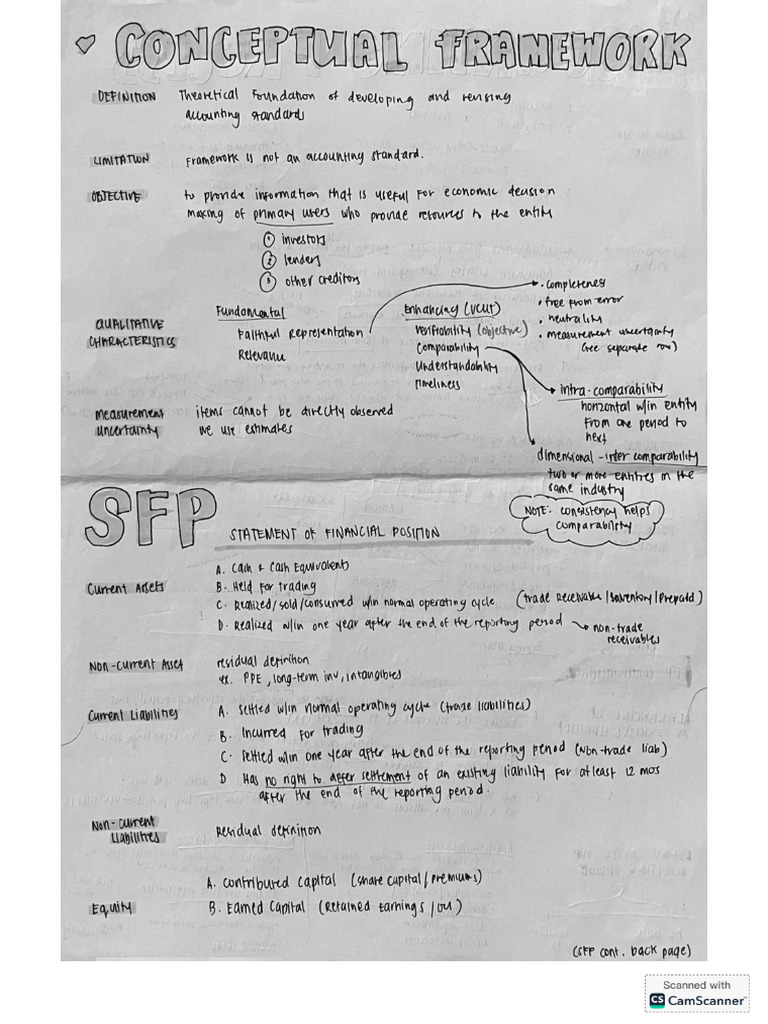 CONCEPTUAL FRAMEWORK
DEFINITION Theoretical foundation of developing and revising
accounting standards
LIMITATION Framework is not an accounting standard.
OBJECTIVE to provide information that is useful for economic decision
making of primary users who provide resources to the entity
① investors
② lenders
③ other creditors
QUALITATIVE CHARACTERISTICS
Fundamental
Faithful Representation
Relevance
Enhancing (VCUT)
Verifiability (objective)
Comparability
Understandability
Timeliness
• completeness
• free from error
• neutrality
• measurement uncertainty
(see separate row)
intra-comparability
horizontal w/in entity
from one period to
next
dimensional - inter comparability
two or more entities in the
same industry
NOTE: consistency helps
comparability
Measurement items cannot be directly observed
Uncertainty we use estimates
SFP STATEMENT OF FINANCIAL POSITION
Current Assets
A. Cash & Cash Equivalents
B. Held for trading
C. Realized/sold/consumed w/in normal operating cycle (trade receivable/Inventory/Prepaid)
D. Realized w/in one year after the end of the reporting period
non-trade
receivables
Non-Current Asset residual definition
ex. PPE, long-term inv, intangibles
Current Liabilities
A. Settled w/in normal operating cycle (trade liabilities)
B. Incurred for trading
C. Settled w/in one year after the end of the reporting period (Non-trade liab)
D Has no right to defer settlement of an existing liability for at least 12 mos
after the end of the reporting period.
Non-Current
Liabilities Residual definition
Equity
A. Contributed Capital (share capital/premiums)
B. Earned Capital (Retained Earnings/OCI)
(SFP cont. back page)
Scanned with
CS CamScanner